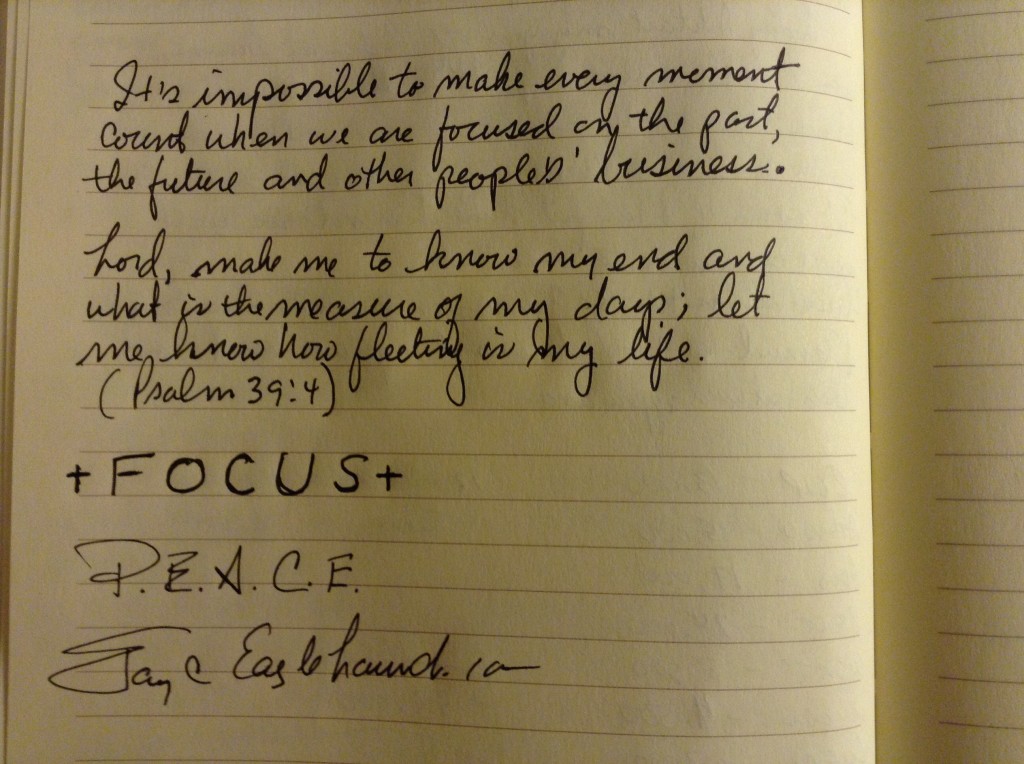 It's impossible to make every moment
count when we are focused on the past,
the future and other peoples' business.
Lord, make me to know my end and
what is the measure of my days; let
me know how fleeting is my life.
(Psalm 39:4)
+FOCUS+
P.E.A.C.E.
Jay C